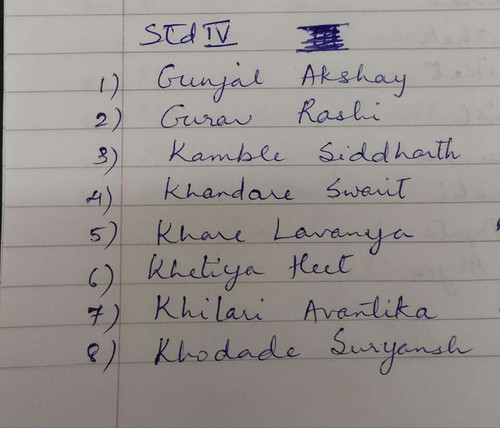 Std IV
1) Gunjal Akshay
2) Gurav Rashi
3) Kamble Siddharth
4) Khandare Swarit
5) Khare Lavanya
6) Khetiya Heet
7) Khilari Avantika
8) Khodade Suryansh